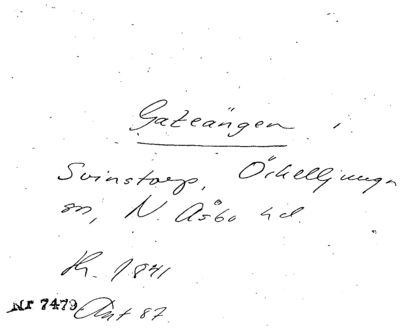 Gateängen i
Svinstorp, Örkelljunga
sn, N. Åsbo hd.
Kr. 1841
Nr 7479 Ant 87.